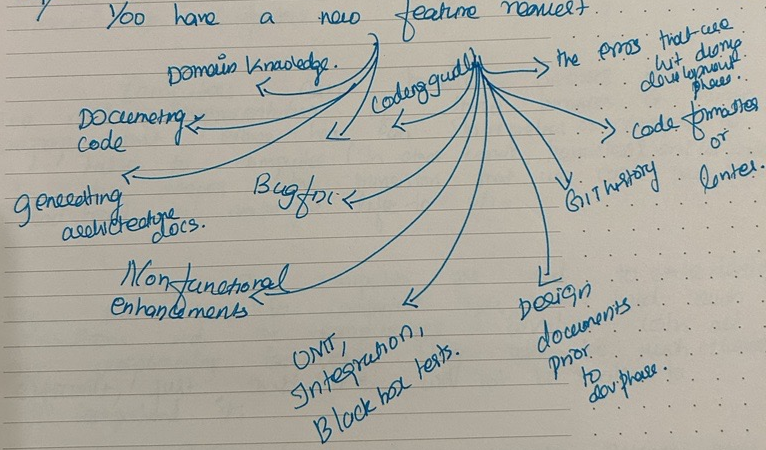 You have a new feature request.
Domain knowledge.
Documeting
code
generating
architecture
docs.
Coding guidl
the erros that are
hit during
development
phase.
code formatter
or
linter.
GIT history
Bug fix
Non functional
enhancements
UNIT,
Integration,
Black box tests.
Design
documents
prior
to
dev phase.